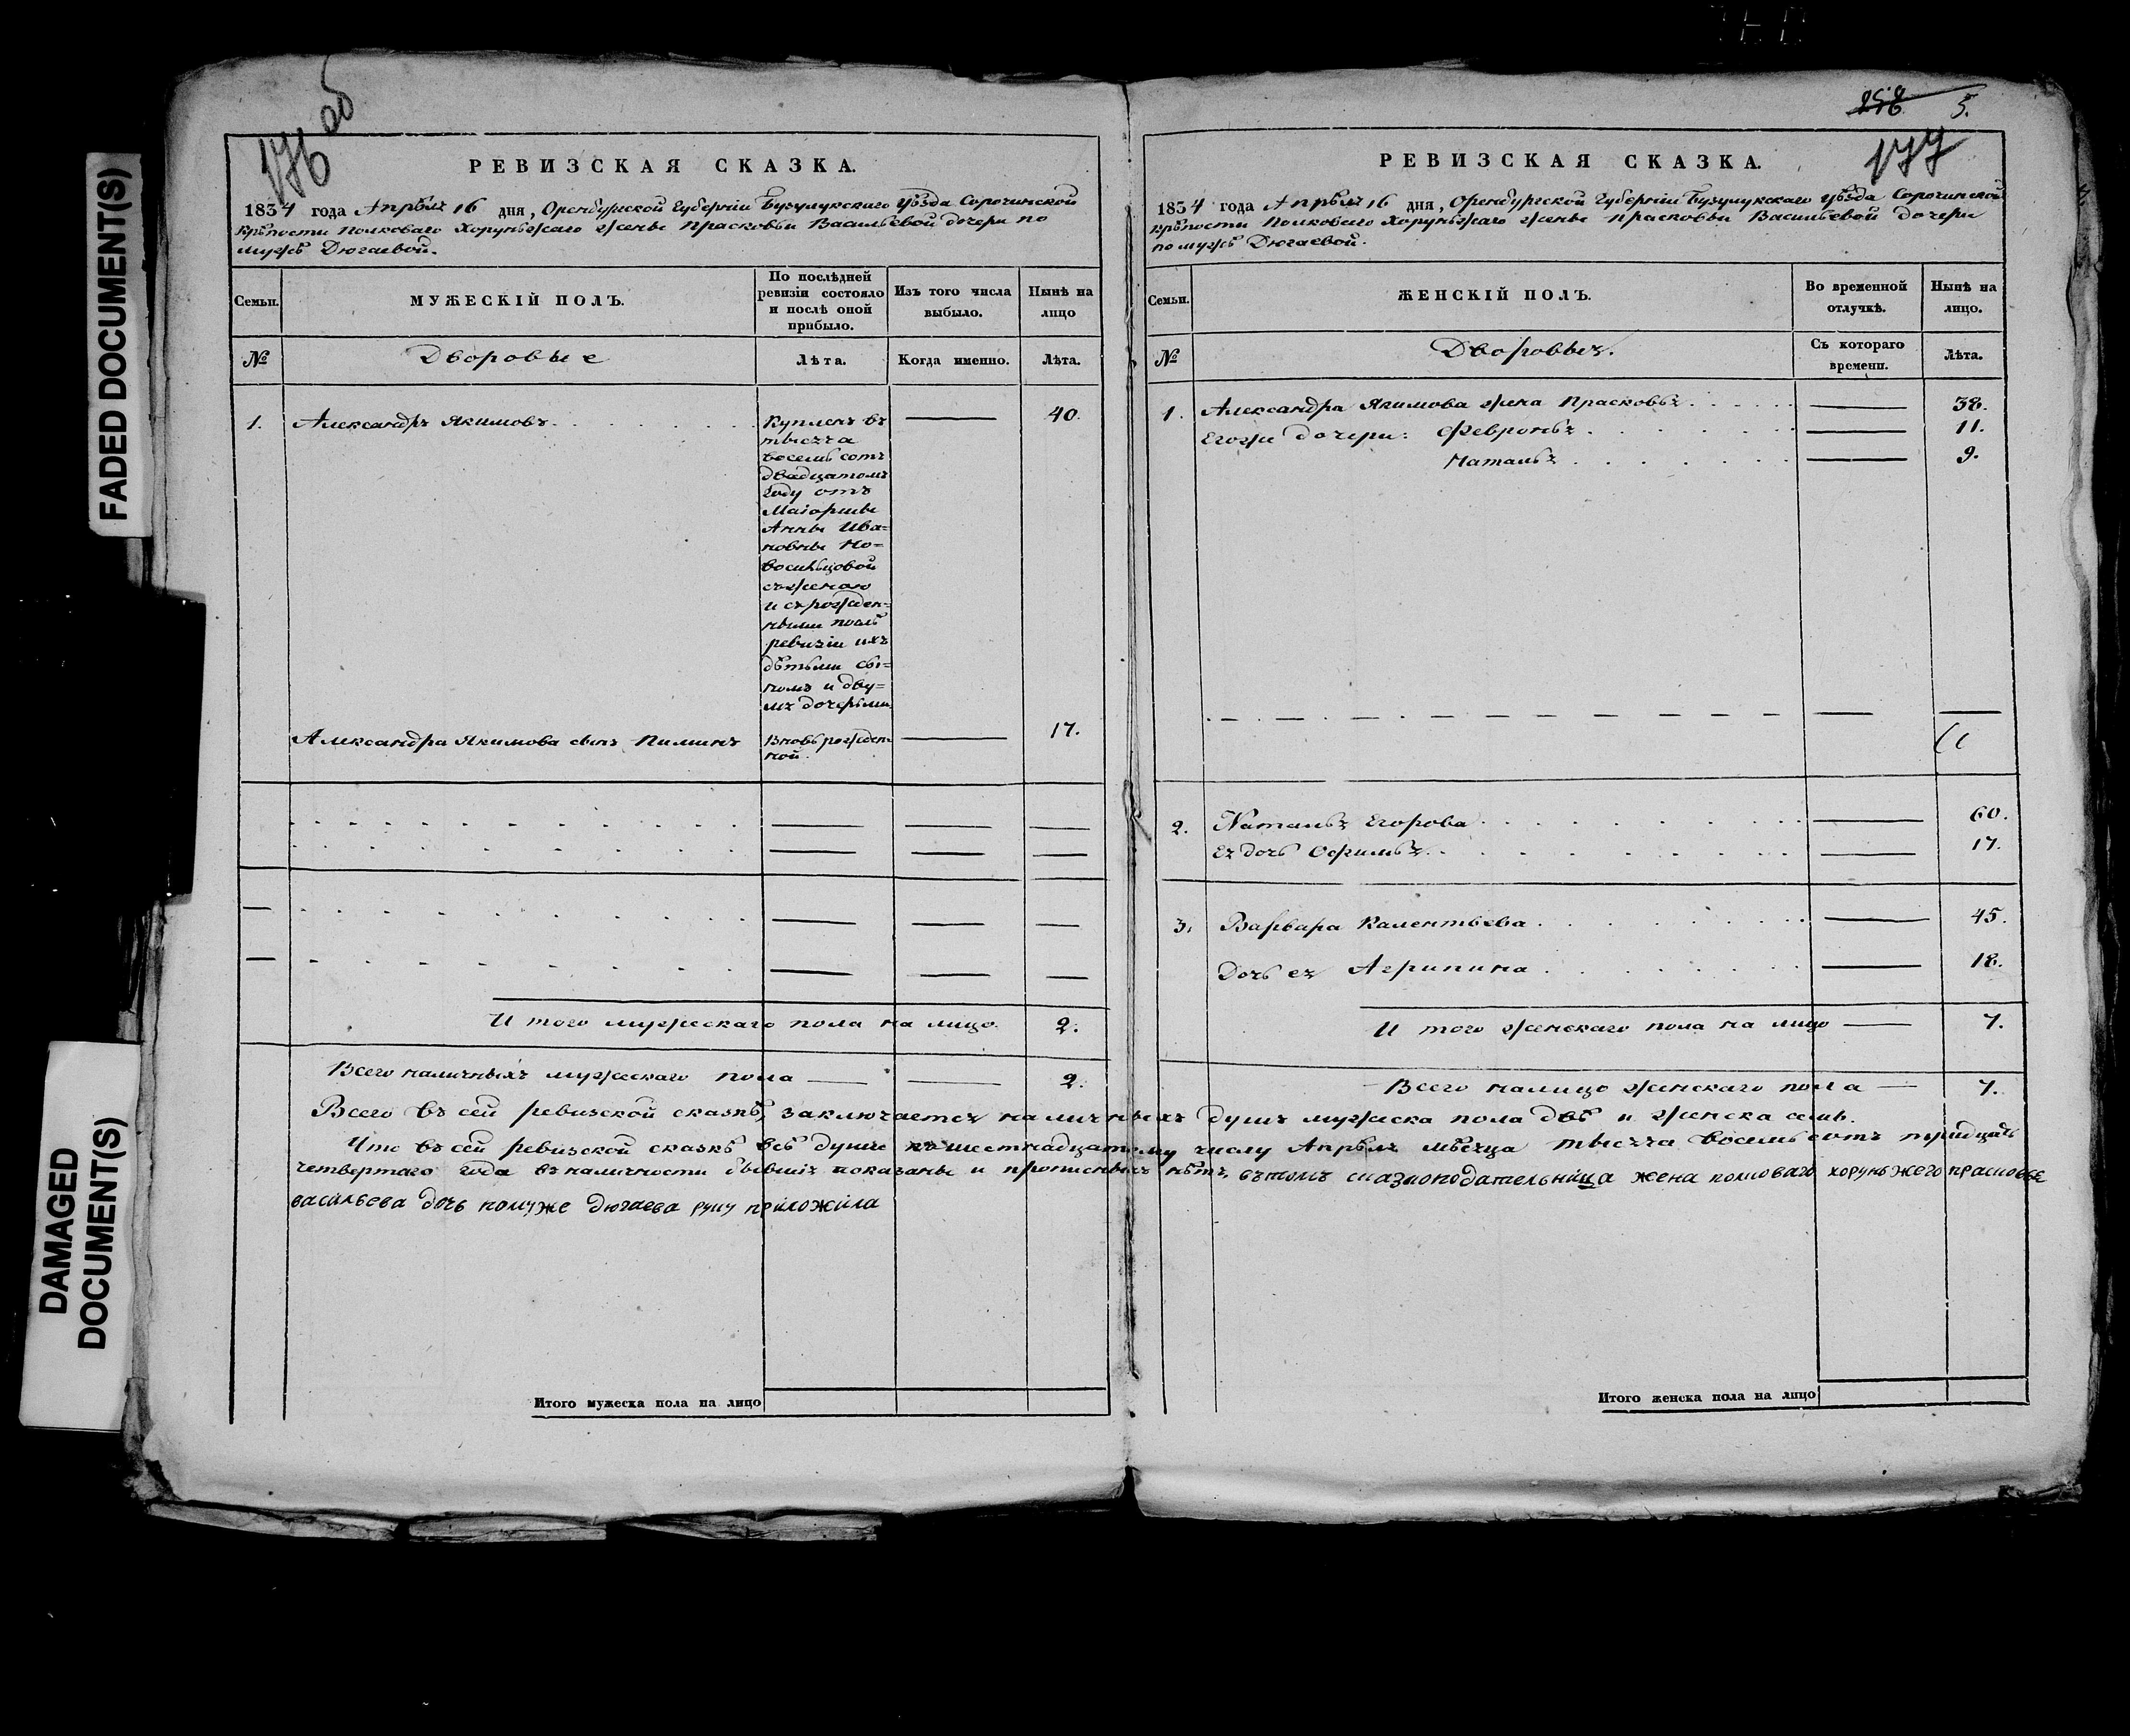 FADED DOCUMENT(S)
DAMAGED
DOCUMENT(S)
176 об
РЕВИЗСКАЯ СКАЗКА.
1834 года Апрѣля 16 дня, Оренбургской Губерніи Бузулукскаго Уѣзда Сорочинской
крѣпости Полковаго Хорунжаго жены Прасковьи Васильевой дочери по
мужѣ Дюгаевой.
Семьи.
МУЖЕСКІЙ ПОЛЪ.
По послѣдней
ревизіи состояло
и послѣ оной
прибыло.
Изъ того числа
выбыло.
Нынѣ на
лицо
№
Дворовые
Лѣта.
Когда именно.
Лѣта.
1. Александръ Якимовъ 40.
Купленъ въ
тысяча
восемь сотъ
двадцатомъ
году отъ
Маіорши
Анны Ива=
новны Но=
восильцовой
съ женою
и съ рожден=
ными послѣ
ревизіи ихъ
дѣтьми сы=
номъ и дву=
мя дочерьми
Александра Якимова сынъ Пименъ Вновь рожден= 17.
ной.
И того мужескаго пола на лицо. 2.
Всего наличныхъ мужескаго пола 2.
258 5.
177
РЕВИЗСКАЯ СКАЗКА.
1834 года Апрѣля 16 дня, Оренбургской Губерніи Бузулукскаго Уѣзда Сорочинской
крѣпости Полковаго Хорунжаго жены Прасковьи Васильевой дочери
по мужѣ Дюгаевой.
Семьи.
ЖЕНСКІЙ ПОЛЪ.
Во временной
отлучкѣ.
Нынѣ на
лицо.
№
Дворовыя.
Съ котораго
времени.
Лѣта.
1. Александра Якимова жена Прасковья 38.
Егоже дочери: Февронья 11.
Наталья 9.
2. Наталья Егорова 60.
Ея дочь Офимья 17.
3. Варвара Калентьева 45.
Дочь ея Агрипина 18.
И того женскаго пола на лицо 7.
Всего налицо женскаго пола 7.
Всего въ сей ревизской сказкѣ, заключается наличныхъ душъ мужеска пола двѣ и женска семь.
Что въ сей ревизской сказкѣ всѣ души къ шестнадцатому числу Апрѣля мѣсяца тысяча восемь сотъ тридцать
четвертаго года въ наличности бывшія показаны и прописныхъ нѣтъ, въ томъ сказкоподательница жена полковаго хорунжего прасковья
васильева дочь по муже Дюгаева руку приложила
Итого мужеска пола на лицо
Итого женска пола на лицо